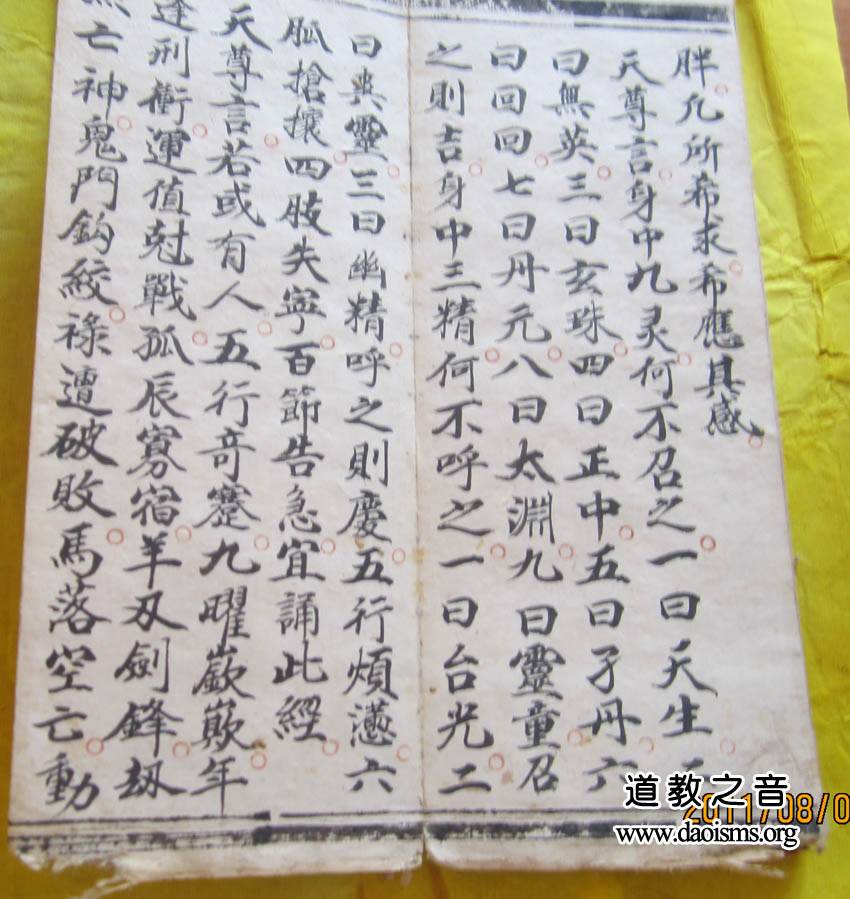 胖凢所希求希應其感
天尊言身中九灵何不召之一曰天生二
曰無英三曰玄珠四曰正中五曰子丹六
曰回回七曰丹元八曰太淵九曰靈童召
之則吉身中三精何不呼之一曰台光二
曰爽靈三曰幽精呼之則慶五行煩懣六
脈搶攘四肢失寧百節告急宜誦此經
天尊言若或有人五行竒蹇九曜嶔欺年
逢刑衝運值尅戰孤辰寡宿羊刃劍鋒刼
亡神鬼門鈎絞祿遭破敗馬落空亡動
道教之音
www.daoisms.org
2011/08/0